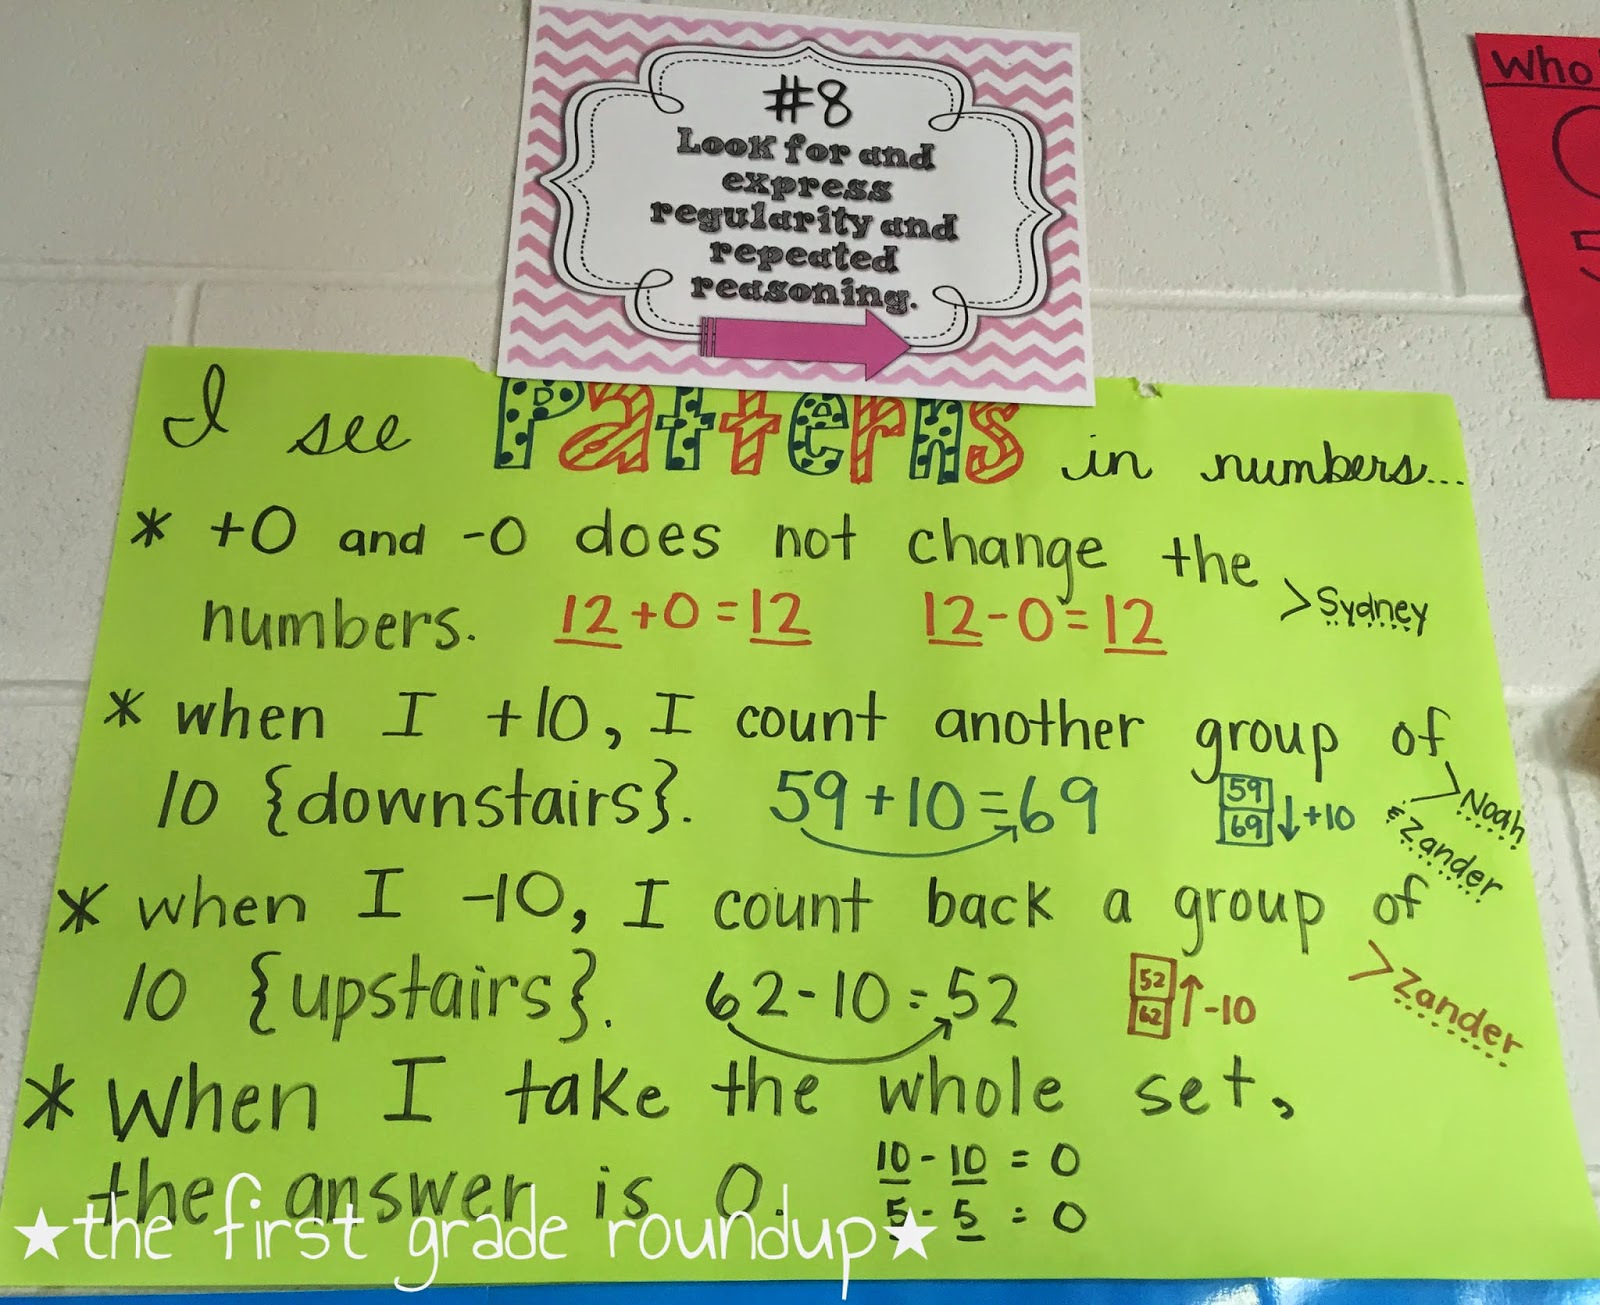 #8
Look for and
express
regularity and
repeated
reasoning.
I see Patterns in numbers...
* +0 and -0 does not change the
numbers. 12+0=12 12-0=12 >Sydney
* when I +10, I count another group of
10 {downstairs}. 59+10=69 59 69 ↓+10 >Noah
& Zander
* when I -10, I count back a group of
10 {upstairs}. 62-10=52 52 62 ↑-10 >Zander
* When I take the whole set,
the answer is 0. 10-10=0
5-5=0
★the first grade roundup★
Who
5